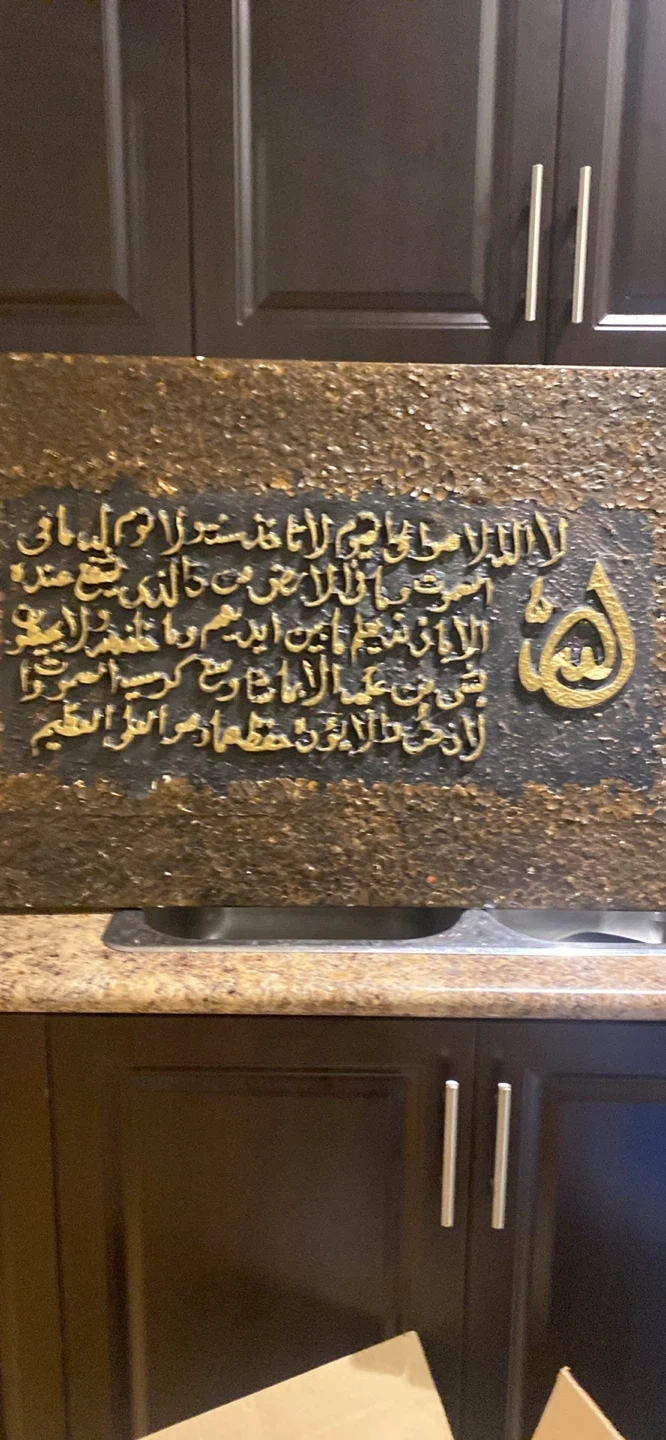 الله
لا اله الا هو الحي القيوم لا تاخذه سنة ولا نوم له ما في
السموت وما في الارض من ذا الذي يشفع عنده
الا باذنه يعلم ما بين ايديهم وما خلفهم ولا يحيطون
بشي من علمه الا بما شا وسع كرسيه السموت وا
لارض ولا يؤده حفظهما وهو العلي العظيم